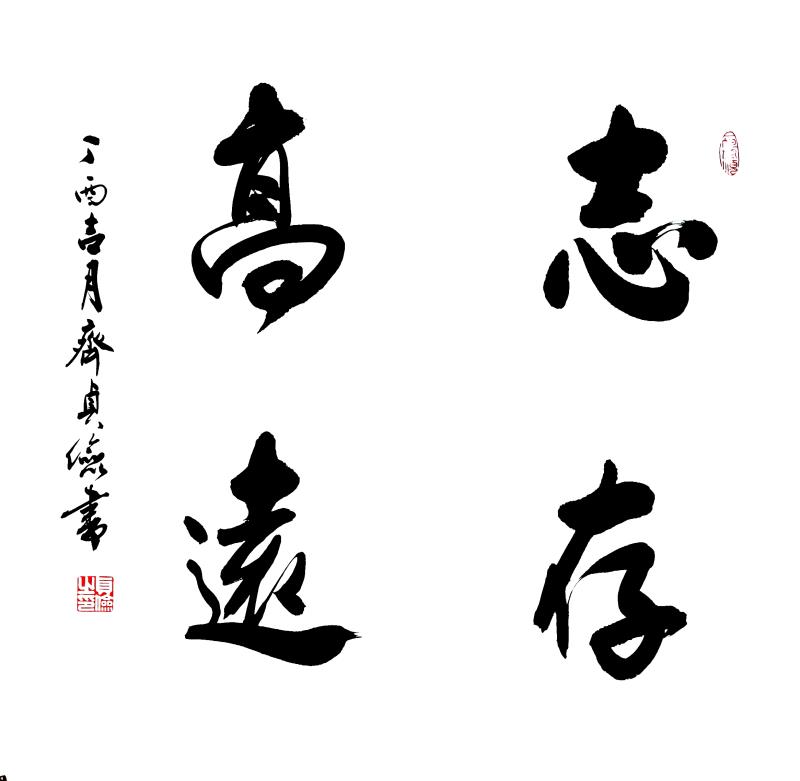 志存
高遠
丁酉吉月齊貞儉書